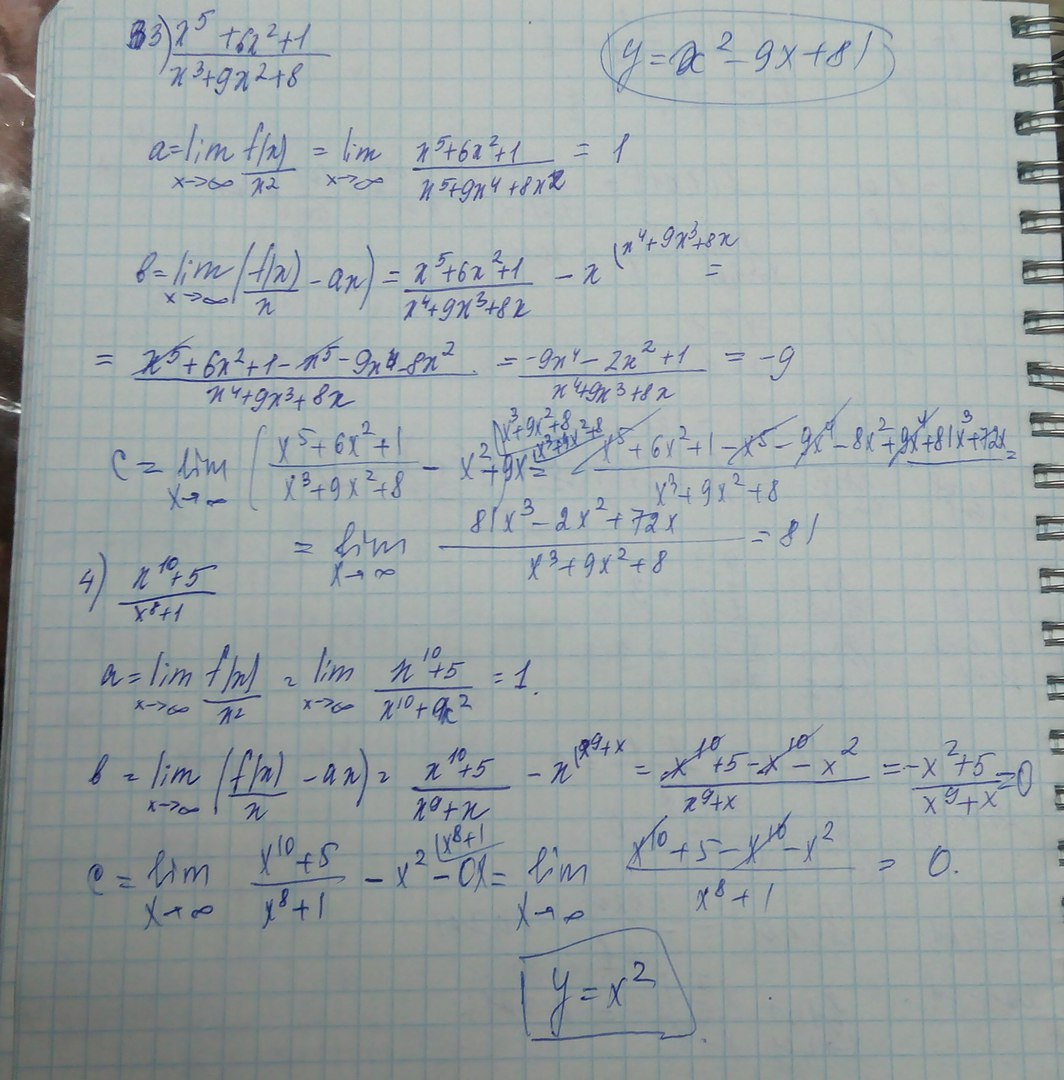 3) (x^5 + 6x^2 + 1)/(x^3 + 9x^2 + 8)
y = x^2 - 9x + 81
a = lim x→∞ f(x)/x^2 = lim x→∞ (x^5 + 6x^2 + 1)/(x^5 + 9x^4 + 8x^2) = 1
b = lim x→∞ (f(x)/x - ax) = (x^5 + 6x^2 + 1)/(x^4 + 9x^3 + 8x) - x (x^4 + 9x^3 + 8x =
= (x^5 + 6x^2 + 1 - x^5 - 9x^4 - 8x^2)/(x^4 + 9x^3 + 8x) = (-9x^4 - 2x^2 + 1)/(x^4 + 9x^3 + 8x) = -9
c = lim x→∞ ((x^5 + 6x^2 + 1)/(x^3 + 9x^2 + 8) - x^2 (x^3 + 9x^2 + 8 + 9x (x^3 + 9x^2 + 8 = (x^5 + 6x^2 + 1 - x^5 - 9x^4 - 8x^2 + 9x^4 + 81x^3 + 72x)/(x^3 + 9x^2 + 8) =
= lim x→∞ (81x^3 - 2x^2 + 72x)/(x^3 + 9x^2 + 8) = 81
4) (x^10 + 5)/(x^8 + 1)
a = lim x→∞ f(x)/x^2 = lim x→∞ (x^10 + 5)/(x^10 + x^2) = 1.
b = lim x→∞ (f(x)/x - ax) = (x^10 + 5)/(x^9 + x) - x (x^9 + x = (x^10 + 5 - x^10 - x^2)/(x^9 + x) = (-x^2 + 5)/(x^9 + x) = 0
c = lim x→∞ (x^10 + 5)/(x^8 + 1) - x^2 (x^8 + 1 - 0x = lim x→∞ (x^10 + 5 - x^10 - x^2)/(x^8 + 1) = 0.
y = x^2